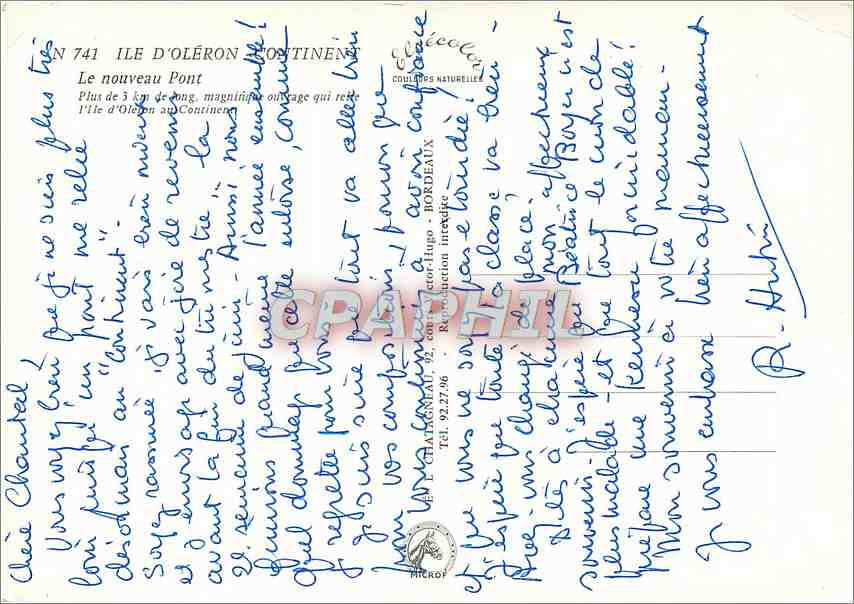 N 741 ILE D'OLÉRON CONTINENT
Le nouveau Pont
Plus de 3 km de long, magnifique ouvrage qui relie
l'Ile d'Oléron au Continent
Elcécolor
COULEURS NATURELLES
E. L. CHATAGNEAU, 92, cours Victor-Hugo - BORDEAUX
Tél. 92.27.96 - Reproduction interdite
MICROF
CPAPHIL
Chère Chantal,
Vous voyez bien que je ne suis plus très
loin puisqu'un pont me relie
désormais au "continent".
Soyez rassurée, je vais bien mieux
et j'envisage avec joie de revenir
avant la fin du trimestre la
2e semaine de juin - Ainsi nous
finirons quand même l'année ensemble!
Quel dommage que cette entorse, comme
je regrette pour vous!
Je suis sûre que tout va aller bien
pour vos compositions, pourvu que
vous continuiez à avoir confiance
et que vous ne soyez pas étourdie!
J'espère que toute la classe va bien -
Avez-vous changé de place?
Dites à chacune mon affectueux
souvenir. J'espère que Béatrice Boyer n'est
plus malade - et que tout le monde
prépare une kermesse formidable!
Mon souvenir à votre maman -
Je vous embrasse bien affectueusement